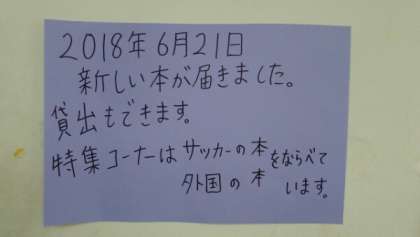 2018年6月21日
新しい本が届きました。
貸出もできます。
特集コーナーはサッカーの本をならべて
外国の本 います。